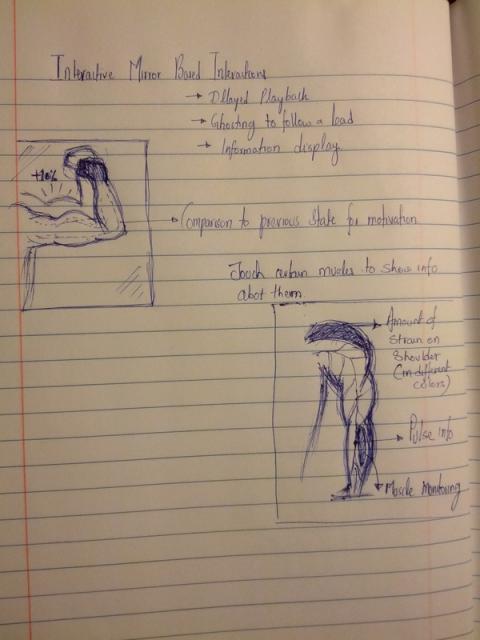 Interactive Mirror Based Interactions
→ Dlayed Playback
→ Ghosting to follow a lead
→ Information display
+10%
→ Comparison to previous state for motivation
Touch certain muscles to show info
abot them.
→ Amount of
strain on
shoulder
(in different
colors)
→ Pulse info
→ Muscle Monitoring